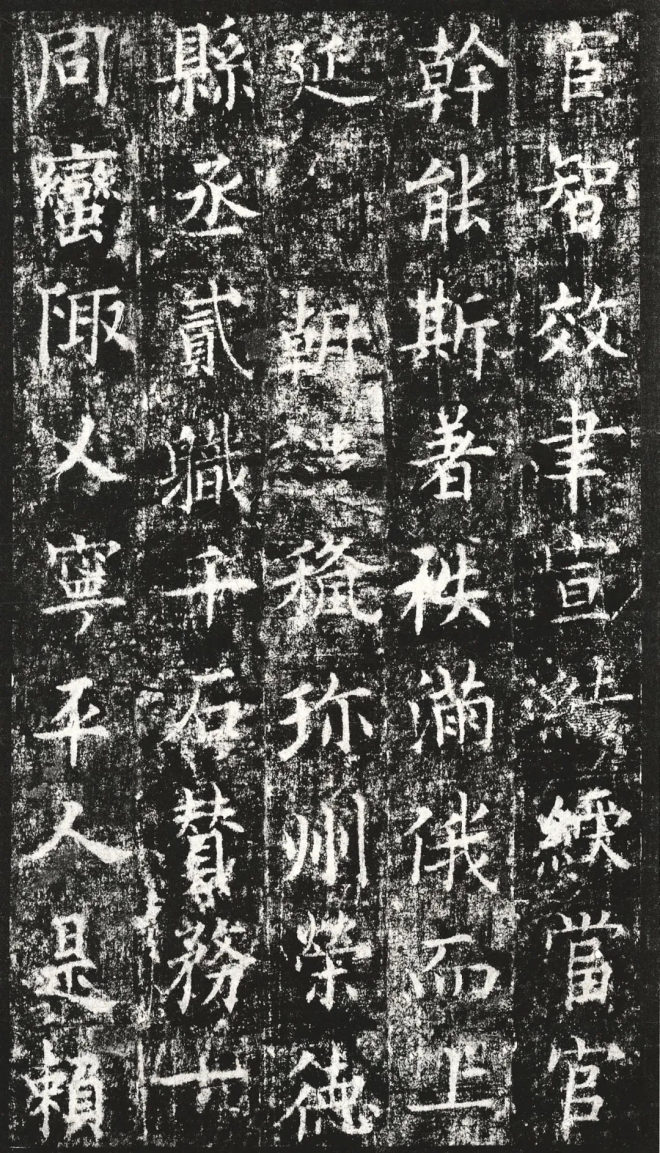 宦智效聿宣結綬當官
幹能斯著秩滿俄而上
延朝珍州榮德
縣丞貳職千石贊務十
同蠻陬乂寧平人是賴